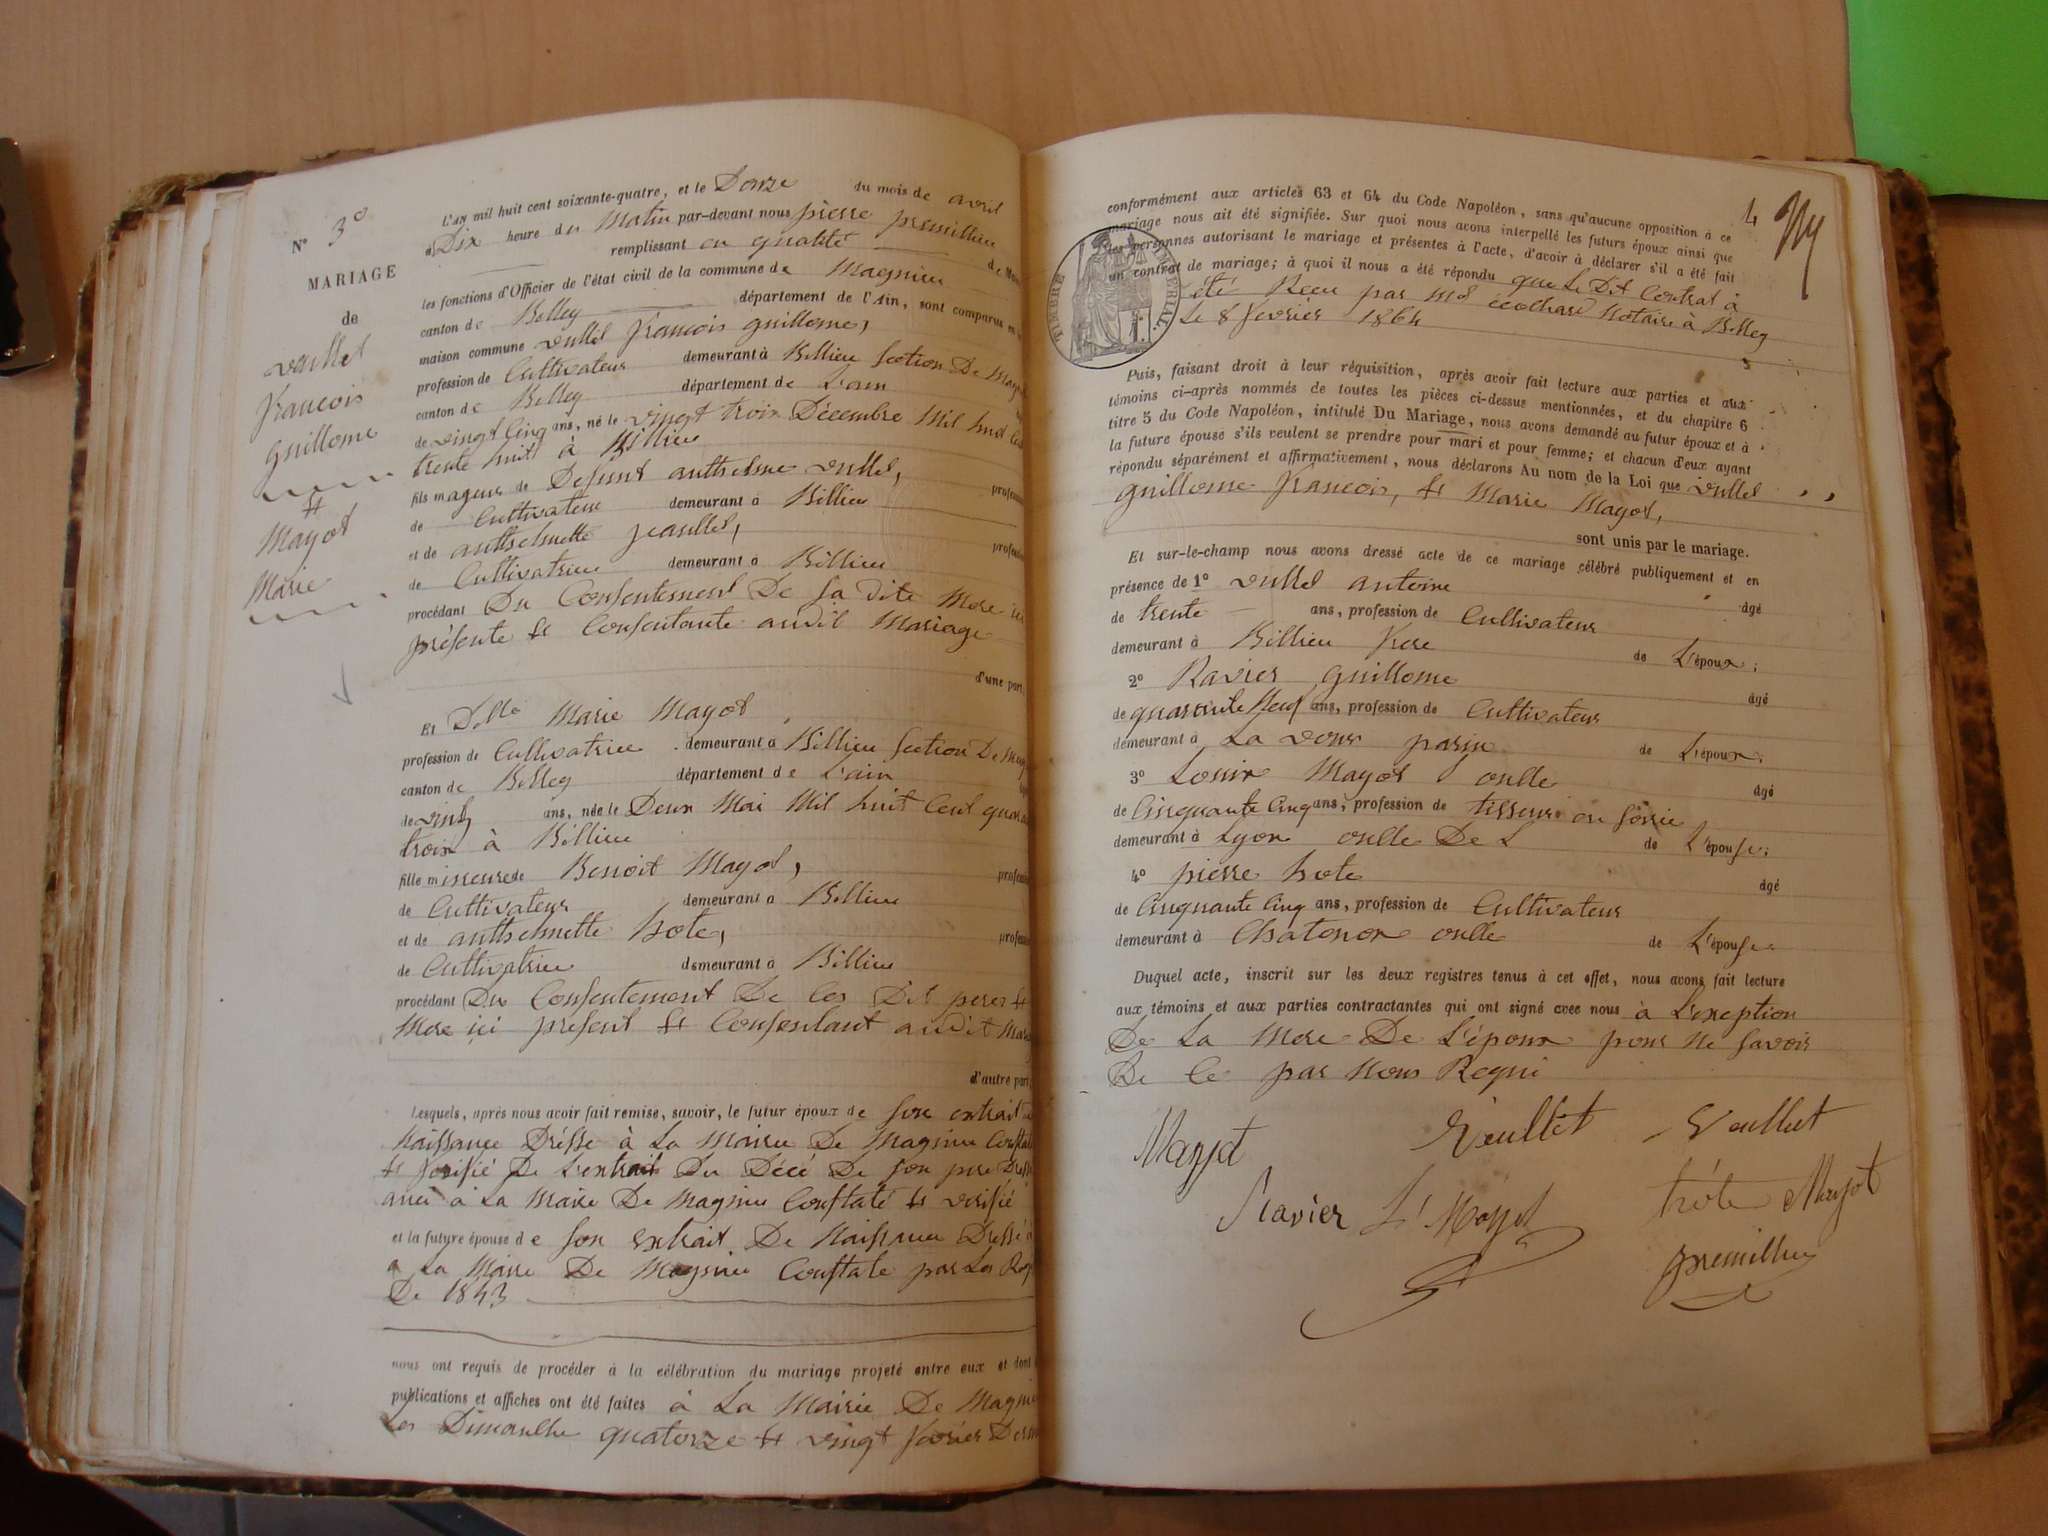 N° 3e
MARIAGE
de
Vullet
françois
guillome
et
Mayot
Marie
L'an mil huit cent soixante-quatre, et le Douze du mois de avril
à Dix heure du Matin par-devant nous pierre premillieu
remplissant en qualité de
les fonctions d'Officier de l'état civil de la commune de Magnieu
canton de Belley département de l'Ain, sont comparus en
maison commune Vullet françois guillome,
profession de Cultivateur demeurant à Billieu Section De
canton de Belley département de L'ain
de vingt Cinq ans, né le vingt trois Décembre Mil huit Cent
trente huit à Billieu
fils mageur de Defunt anthelme vullet,
de Cultivateur demeurant à Billieu
et de anthelmette jeanllet,
de Cultivatrice demeurant à Billieu
procédant Du Consentement De sa dite Mere ici
présente et Consentante audit Mariage
d'une part,
Et Delle Marie Mayot
profession de Cultivatrice demeurant à Billieu Section De
canton de Belley département de L'ain
de vint ans, née le Deux Mai Mil huit Cent
trois à Billieu
fille minneure de Benoit Mayot,
de Cultivateur demeurant à Billieu
et de anthelmette trote,
de Cultivatrice demeurant à Billieu
procédant Du Consentement De Ces Dit peres et
Mere ici présent et Consentant audit
d'autre part
Lesquels, après nous avoir fait remise, savoir, le futur époux de son extrait
Naissance Dréssé à La Mairie De Magnieu
et vérifié De L'extrait Du Décé De son pere
à La Maire De Magnieu Constaté et vérifié
et la future épouse de son extrait De Naissance Dressé
à La Maire De Magnieu Constate par Les
De 1843
nous ont requis de procéder à la célébration du mariage projeté entre eux et dont
publications et affiches ont été faites à La Mairie De
Les Dimanche quatorze et vingt février
4
conformément aux articles 63 et 64 du Code Napoléon, sans qu'aucune opposition à ce
mariage nous ait été signifiée. Sur quoi nous avons interpellé les futurs époux ainsi que
les personnes autorisant le mariage et présentes à l'acte, d'avoir à déclarer s'il a été fait
un contrat de mariage; à quoi il nous a été répondu que Le Dit Contrat à
été Recu par Me cochard Notaire à Belley
Le 8 fevrier 1864
TIMBRE IMPÉRIAL
Puis, faisant droit à leur réquisition, après avoir fait lecture aux parties et aux
témoins ci-après nommés de toutes les pièces ci-dessus mentionnées, et du chapitre 6
titre 5 du Code Napoléon, intitulé Du Mariage, nous avons demandé au futur époux et à
la future épouse s'ils veulent se prendre pour mari et pour femme; et chacun d'eux ayant
répondu séparément et affirmativement, nous déclarons Au nom de la Loi que Vullet
guillome francois, et Marie Mayot,
sont unis par le mariage.
Et sur-le-champ nous avons dressé acte de ce mariage célébré publiquement et en
présence de 1° vullet antoine âgé
de trente ans, profession de Cultivateur
demeurant à Billieu frere de L'époux;
2° Ravier guillome âgé
de quarante Neuf ans, profession de Cultivateur
demeurant à La vour de L'époux;
3° Louis Mayot onlle âgé
de Cinquante Cinq ans, profession de tisseur en soirie
demeurant à Lyon onlle De L de L'épouse;
4° pierre trote âgé
de Cinquante Cinq ans, profession de Cultivateur
demeurant à Chatonor onlle de L'épouse
Duquel acte, inscrit sur les deux registres tenus à cet effet, nous avons fait lecture
aux témoins et aux parties contractantes qui ont signé avec nous à L'exeption
De La Mere De L'époux pour Ne savoir
De Ce par Nous Requi
Mayot Veullet Veullet
Ravier L. Mayot trote Mayot
premillieu